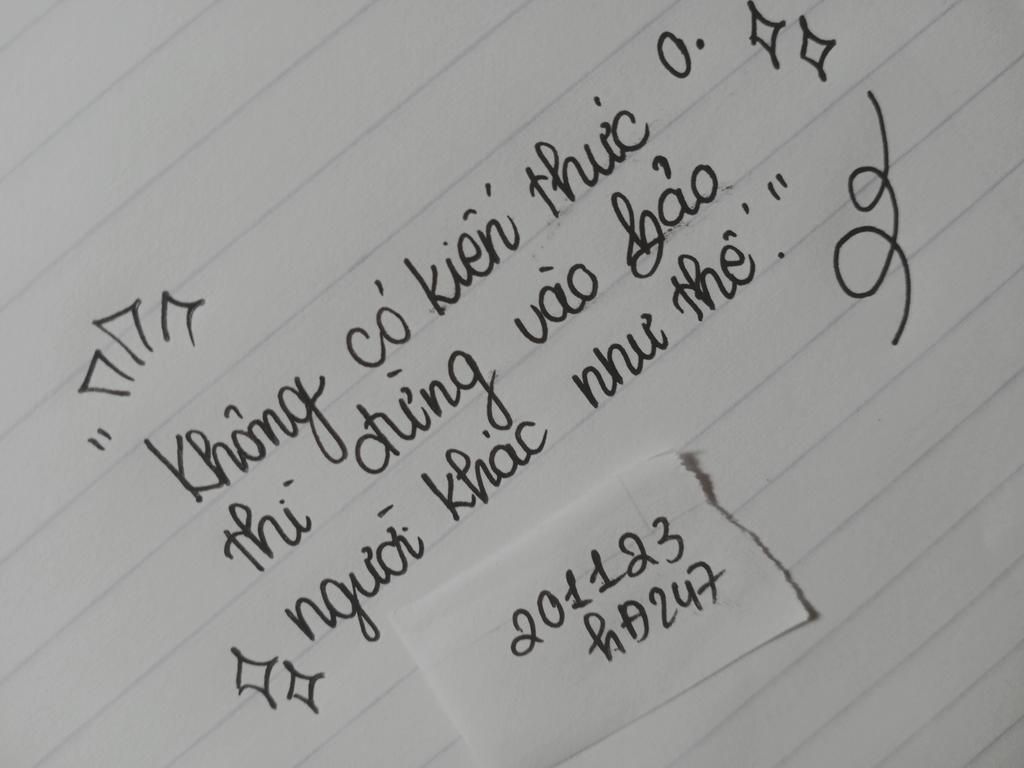 "Không có kiến thức
thì đừng vào bảo
người khác như thế."
201123
hD247